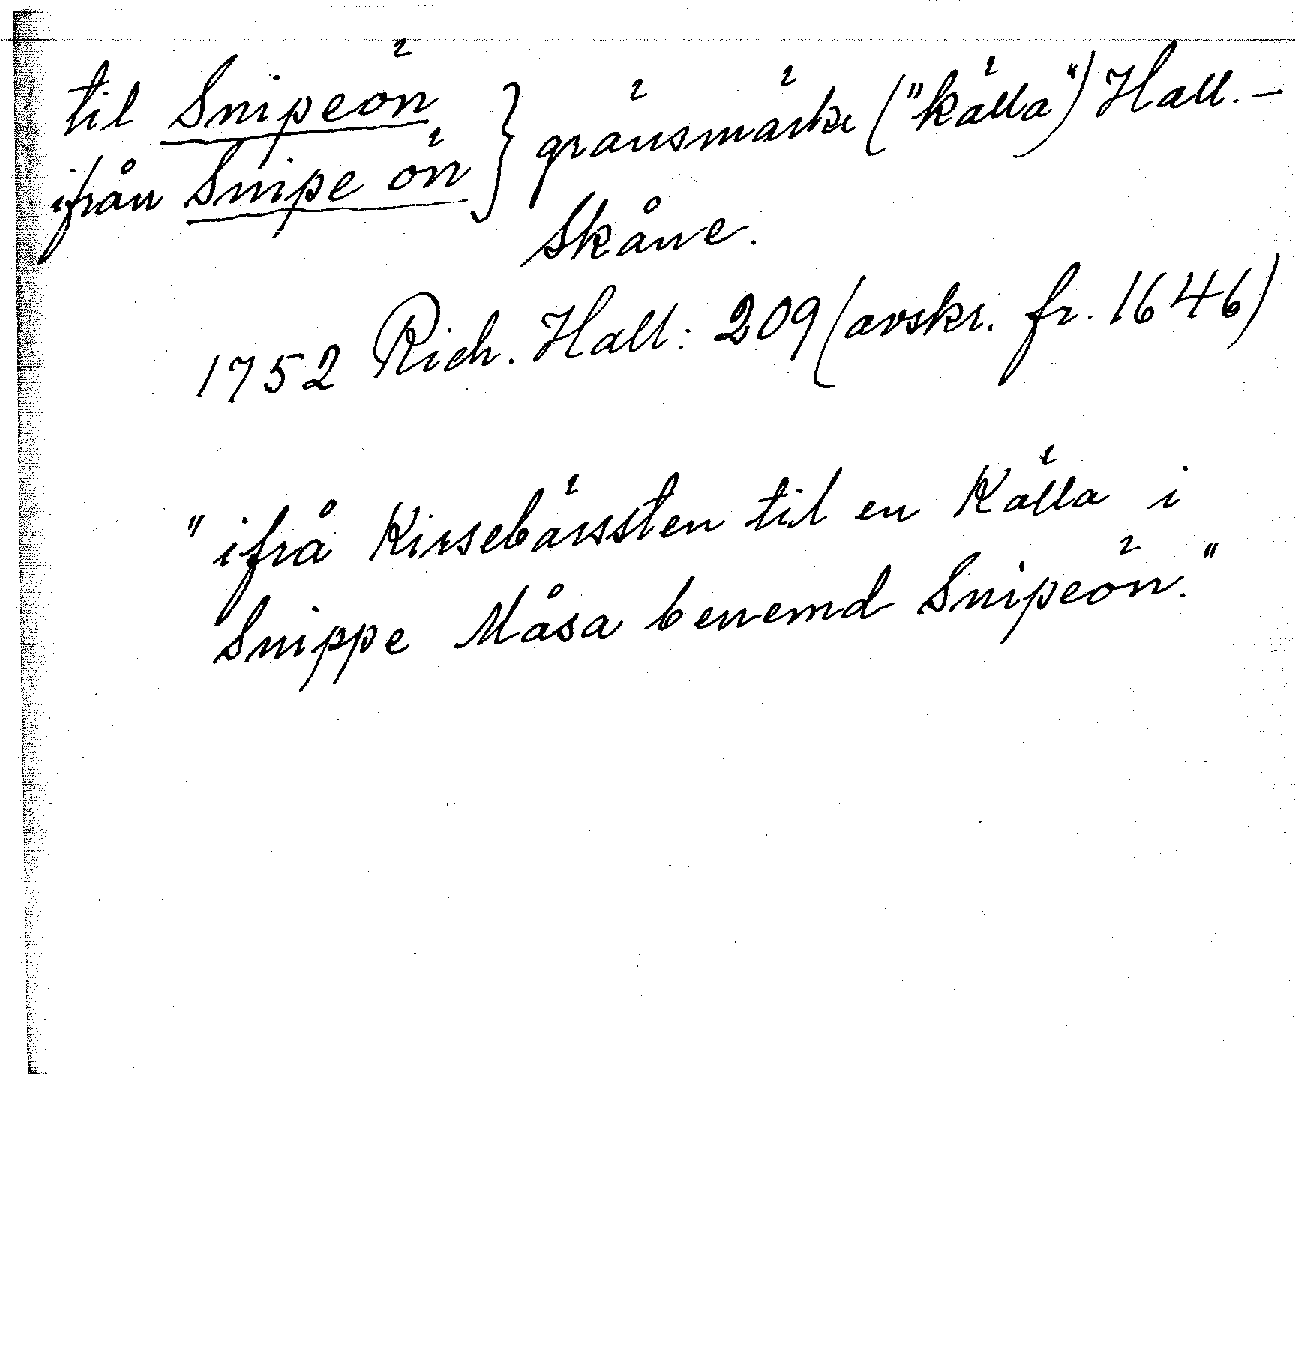 til Snipeön } gränsmärke ("källa") Hall. –
ifrån Snipe ön
Skåne.
1752 Rich. Hall: 209 (avskr. fr. 1646)
"ifrå Kirsebärssten til en Källa i
Snippe Måsa benemd Snipeön."